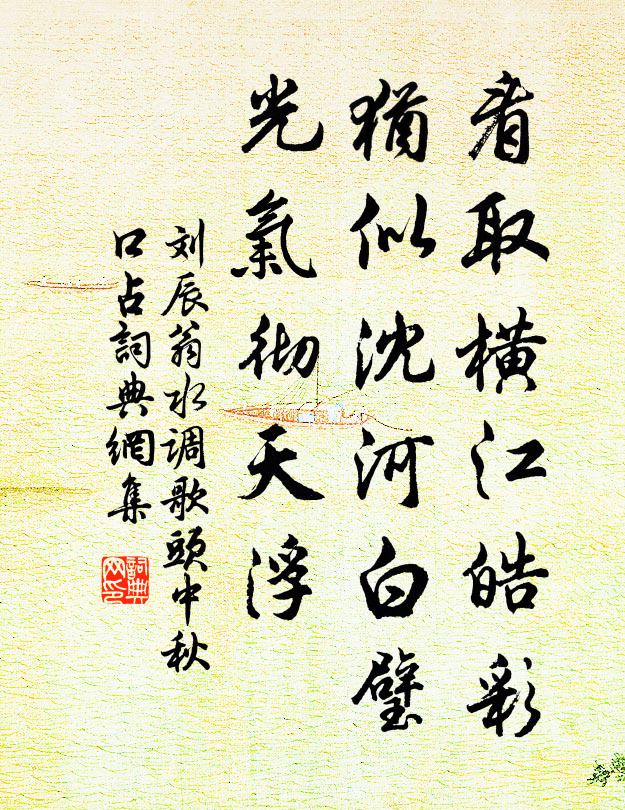 看取横江皓彩
猶似沈河白璧
光氣彻天浮
刘辰翁水调歌頭中秋
口占詞典網集
詞典网印